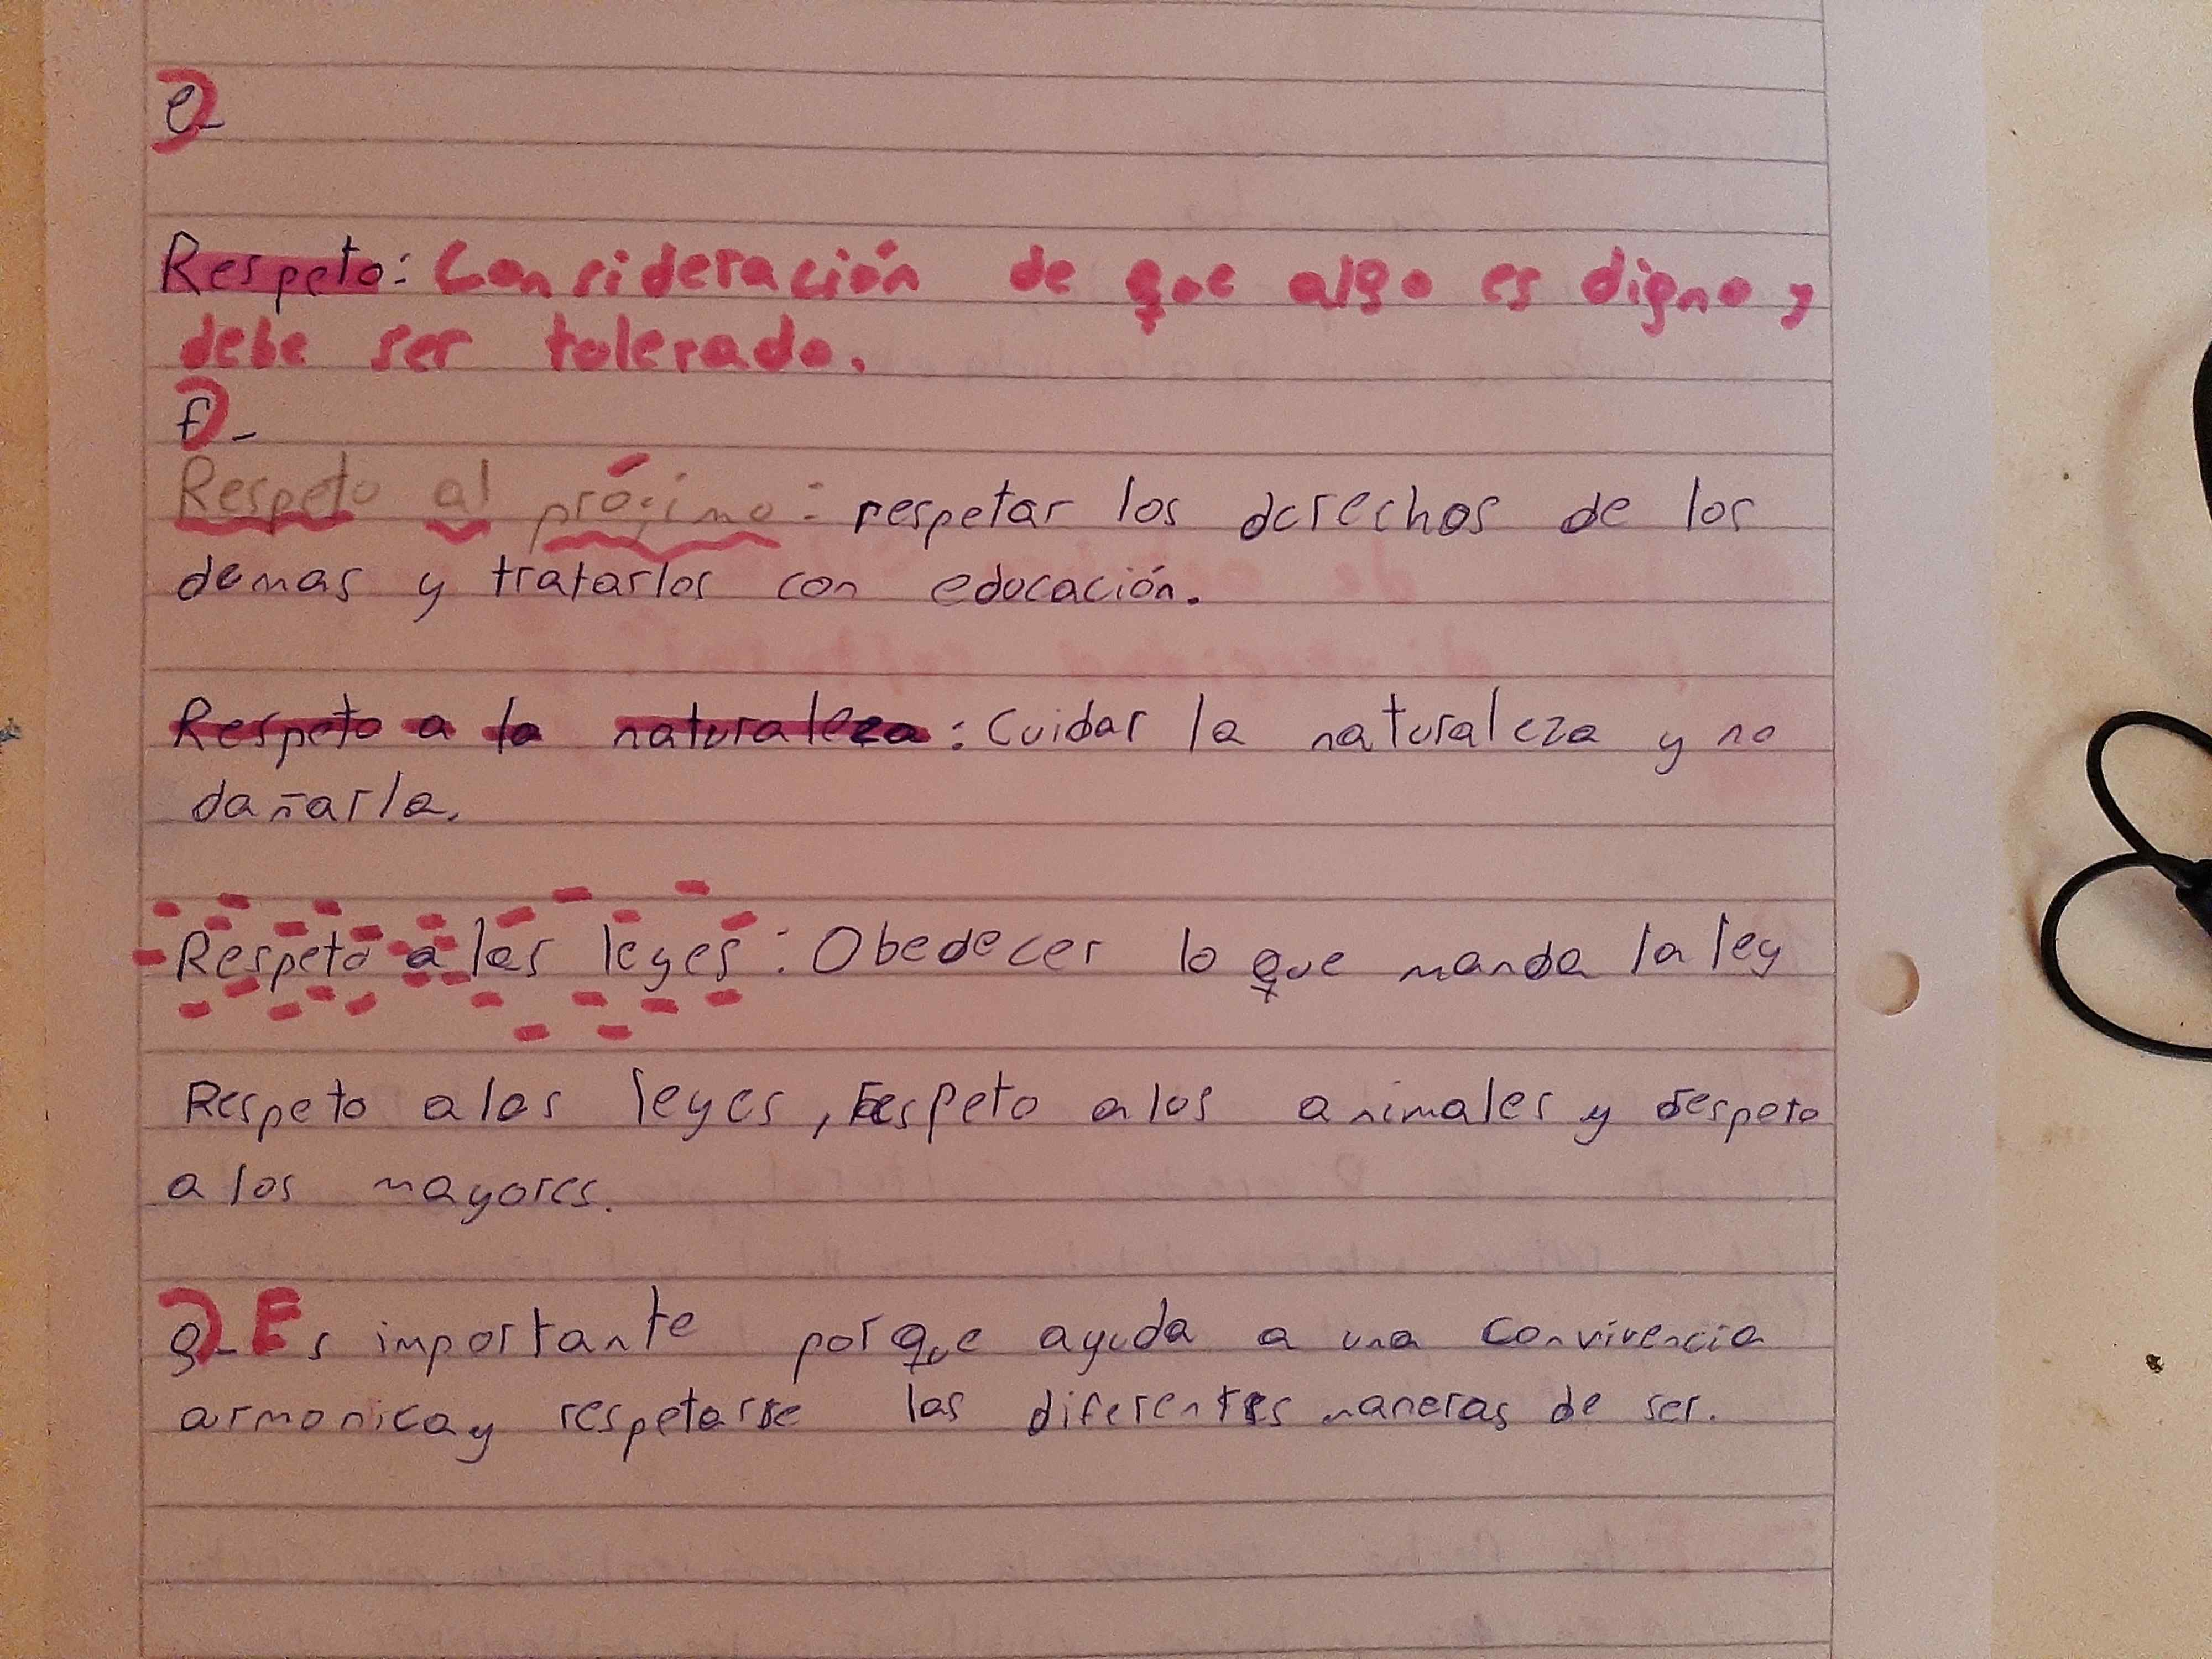 e)-
Respeto: Consideración de que algo es digno y
debe ser tolerado.
f)-
Respeto al prójimo: respetar los derechos de los
demas y tratarlos con educación.
Respeto a la naturaleza: Cuidar la naturaleza y no
dañarla.
Respeto a las leyes: Obedecer lo que manda la ley
Respeto a las leyes, respeto a los animales y respeto
a los mayores.
g)- Es importante porque ayuda a una convivencia
armonica y respetarse las diferentes maneras de ser.